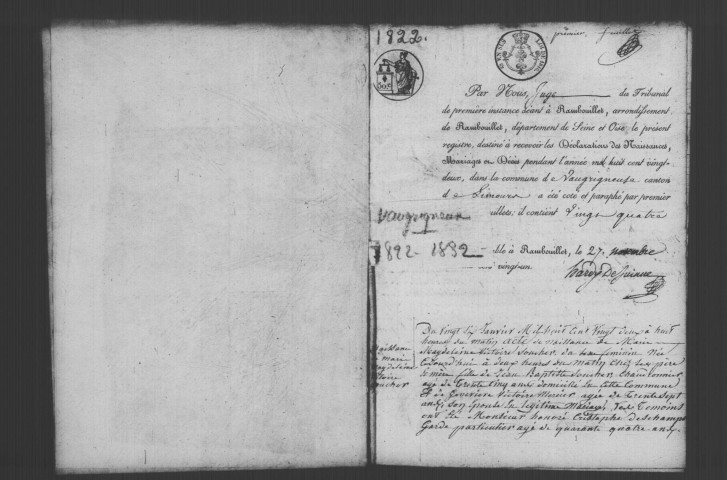 1822.
premier feuillet
Par Nous, Juge du Tribunal
de première instance séant à Rambouillet, arrondissement
de Rambouillet, département de Seine et Oise, le présent
registre, destiné à recevoir les Déclarations des Naissances,
Mariages ou Décès pendant l'année mil huit cent vingt-
deux, dans la commune de Vaugrigneuse canton
de Limours a été coté et paraphé par premier
illets; il contient Vingt quatre
Vaugrigneuse
1822-1832
à Rambouillet, le 27 novembre
vingt-un
Naissance
Marie
Magdeleine
Victoire
Boucher
Du Vingt Six Janvier Mil huit Cent Vingt deux à huit
heures du matin acte de naissance de Marie
Magdeleine Victoire Boucher du Sexe féminin Née
à deux heures du Matin chez
mère fille de Jean Baptiste Boucher Charbonnier
agé de Trente Cinq ans domicilié en Cette Commune
Et de Genevieve Victoire Mercier agée de Trente Sept
ans son Epouse En légitime Mariage, Les Temoins
ont été Monsieur honoré Deschamps
Garde particulier agé de quarante quatre ans